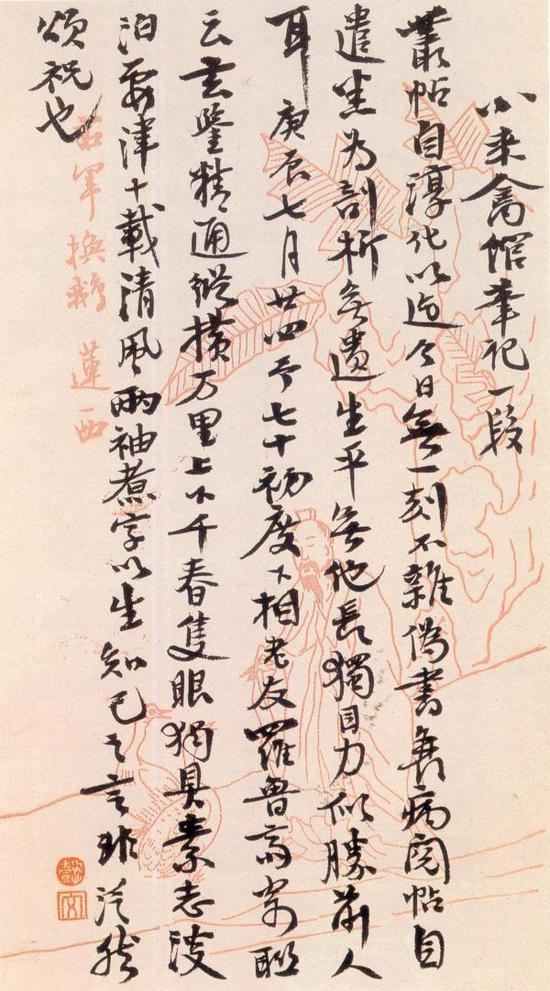 小来禽馆笔记一段
丛帖自淳化以迄今日无一刻不杂伪书衰病阅帖自
遣坐为剖析无遗生平无他长独目力似胜前人
耳 庚辰七月廿四予七十初度下相老友罗鲁斋寄联
云玄鉴精通纵横万里上下千春只眼独具素志淡
泊要津十载清风两袖煮字以生知己之言非泛然
颂祝也
右军换鹅 莲西